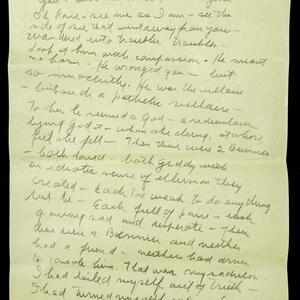 see me as I am - see the
side of me that went away from you -
wandered into trouble, trouble -
Look at him with compassion. He meant
no harm. He wronged you - but
so innocently. He was the villain
- but such a pathetic villain -
To her he seemed a God - a redeemer
God to whom she clung, at whose
feet she fell - Then there were 2
- both loved - both giddy with
an idiotic sense of illusion they
created - Each too weak to do anything
but lie - Each full of pain - each
growing sad and desperate - Then
there were and neither
had a friend - neither had
to console him. That was my sadness -
I had failed myself and of truth -
I had turned myself